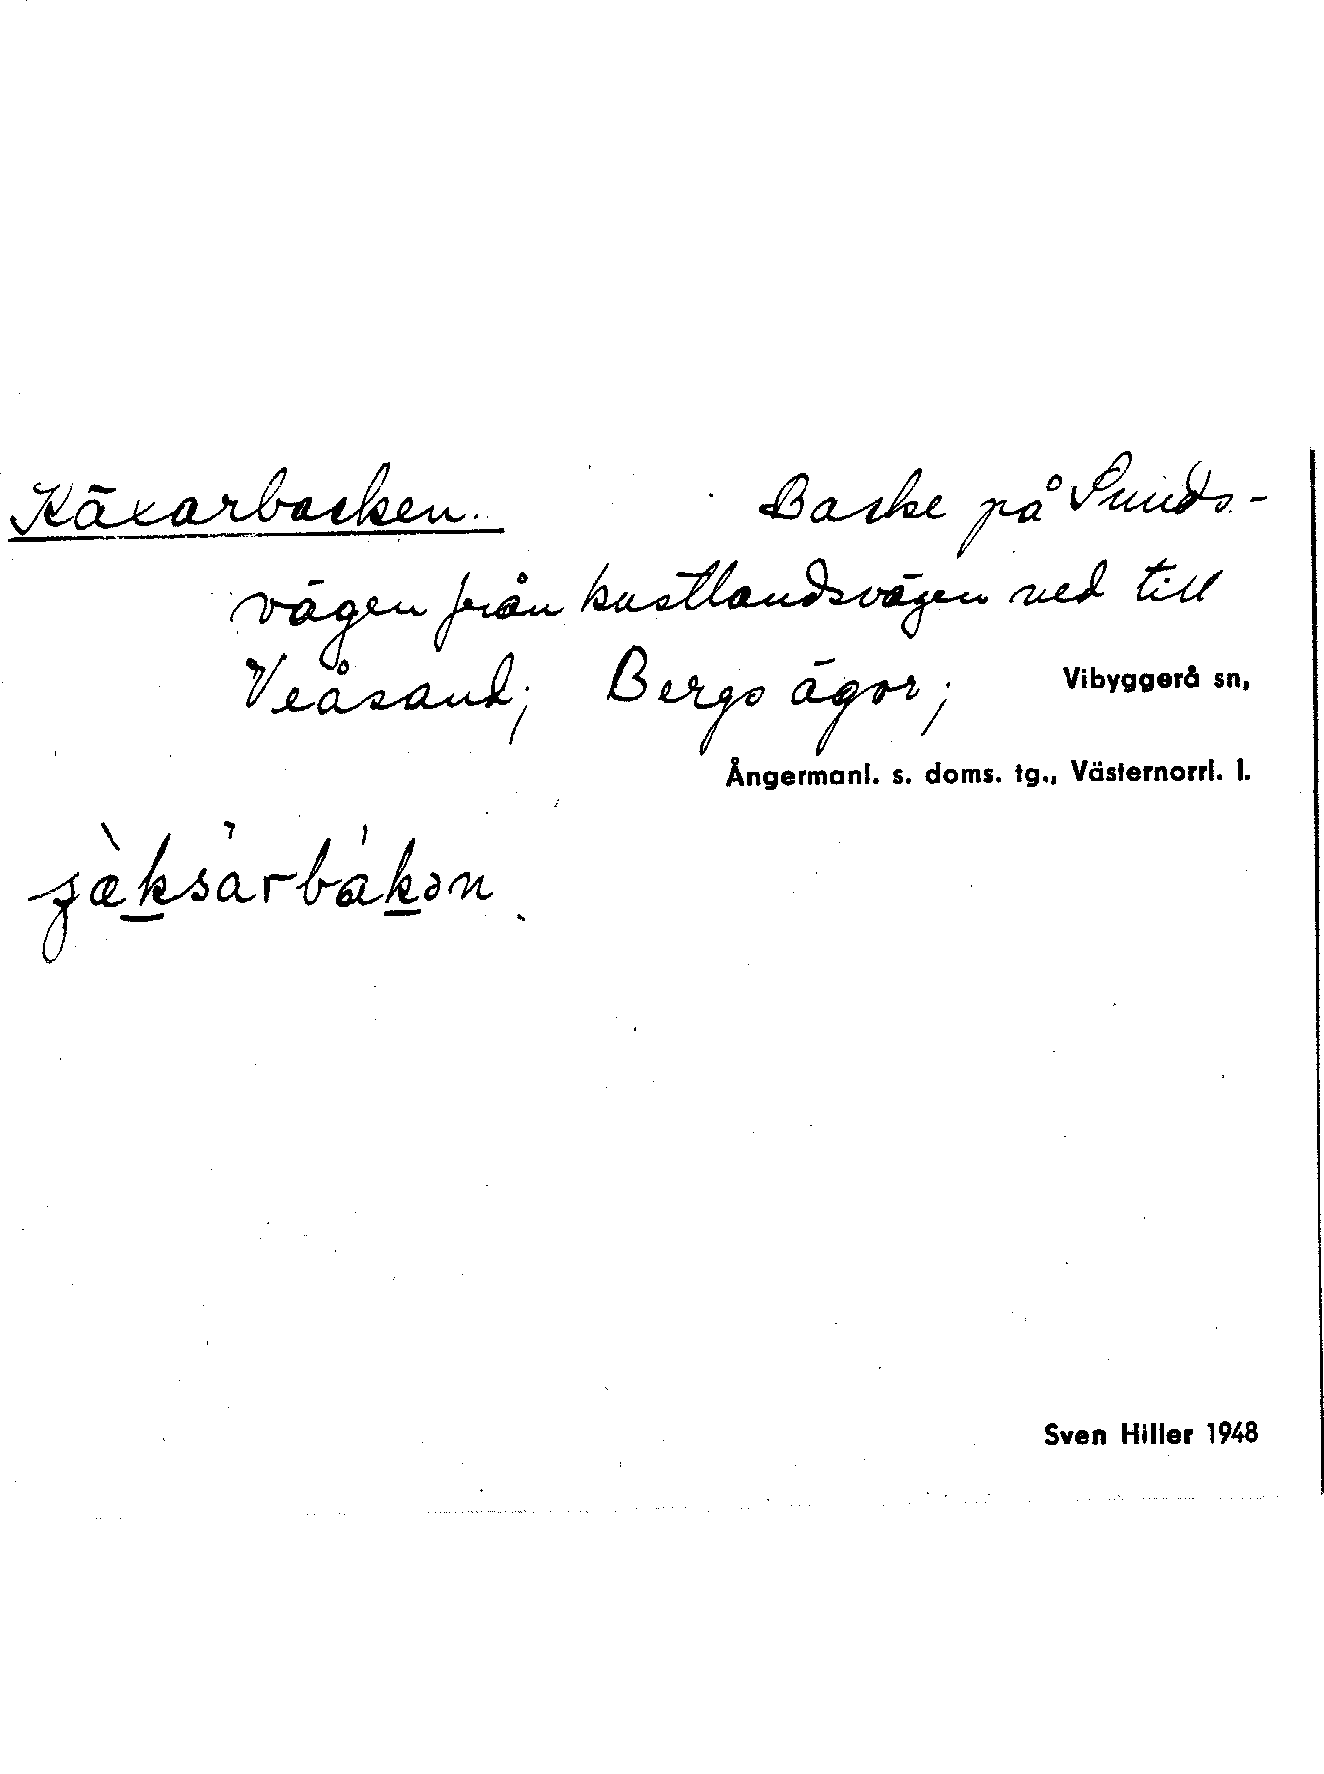 Käxarbacken. Backe på Sunds-
vägen från kustlandsvägen ned till
Veåsand; Bergs ägor; Vibyggerå sn,
Ångermanl. s. doms. tg., Västernorrl. l.
Sven Hiller 1948